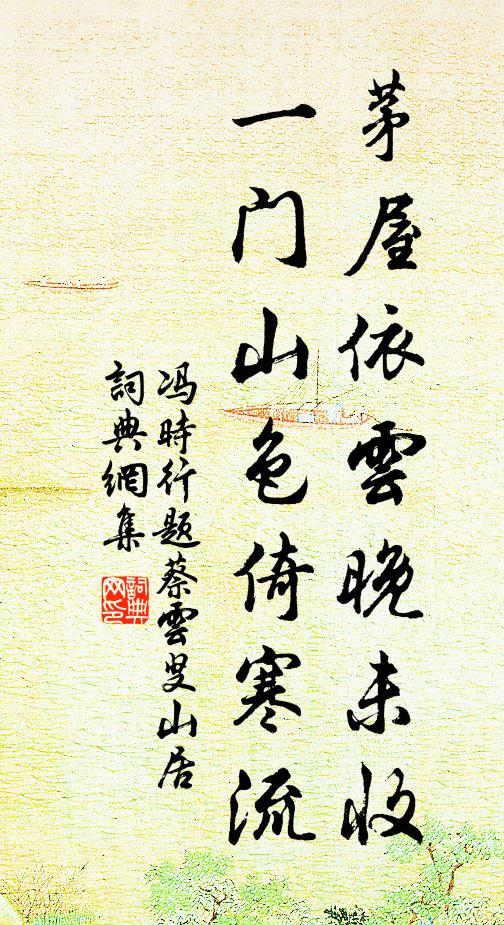 茅屋依雲晚未收
一门山色倚寒流
冯時行题蔡雲叟山居
詞典網集
詞典網印